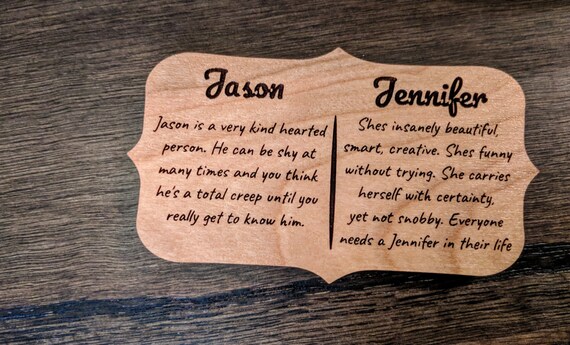 Jason
Jason is a very kind hearted
person. He can be shy at
many times and you think
he's a total creep until you
really get to know him.
Jennifer
Shes insanely beautiful,
smart, creative. Shes funny
without trying. She carries
herself with certainty,
yet not snobby. Everyone
needs a Jennifer in their life